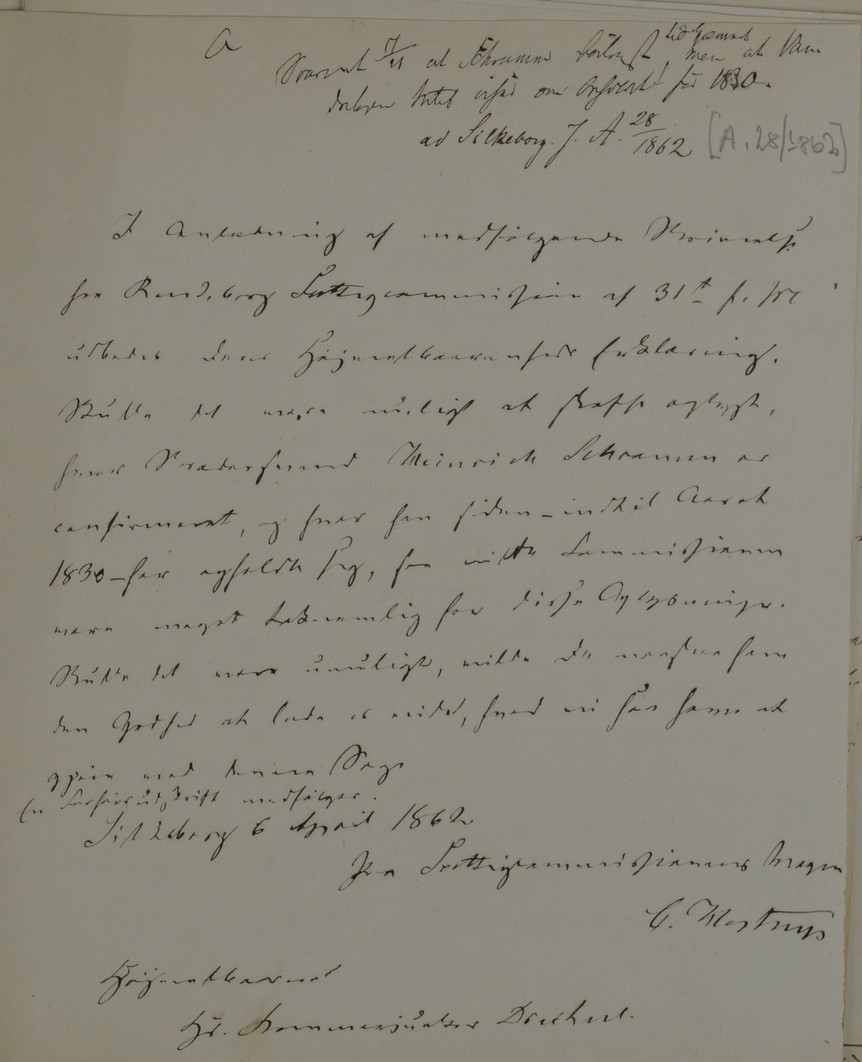 a
Svaret 7/4 at Schramm
intet om for 1830.
ad Silkeborg. J. A. 28/1862 [A. 28/1862]
I Anledning af medfølgende Skrivelse
fra Rendsborg Fattigcommission af 31te f. M.
udbedes deres Højvelbaarenheds Erklæring.
Skulde det være muligt at skaffe oplyst,
hvor Heinrich Schramm er
confirmeret, og hvor han siden – indtil Aaret
1830 – har opholdt sig, saa vilde Commissionen
være meget taknemlig for disse Oplysninger.
Skulde det være umuligt, vilde De
den Godhed at lade os vide, hvad vi har
gjøre med denne Sag.
En Forhørsudskrift medfølger.
Silkeborg 6 April 1862.
Paa Fattigcommissionens Vegne
C. Hostrup
Højvelbaarne
Hr. Kammerjunker Drechsel.